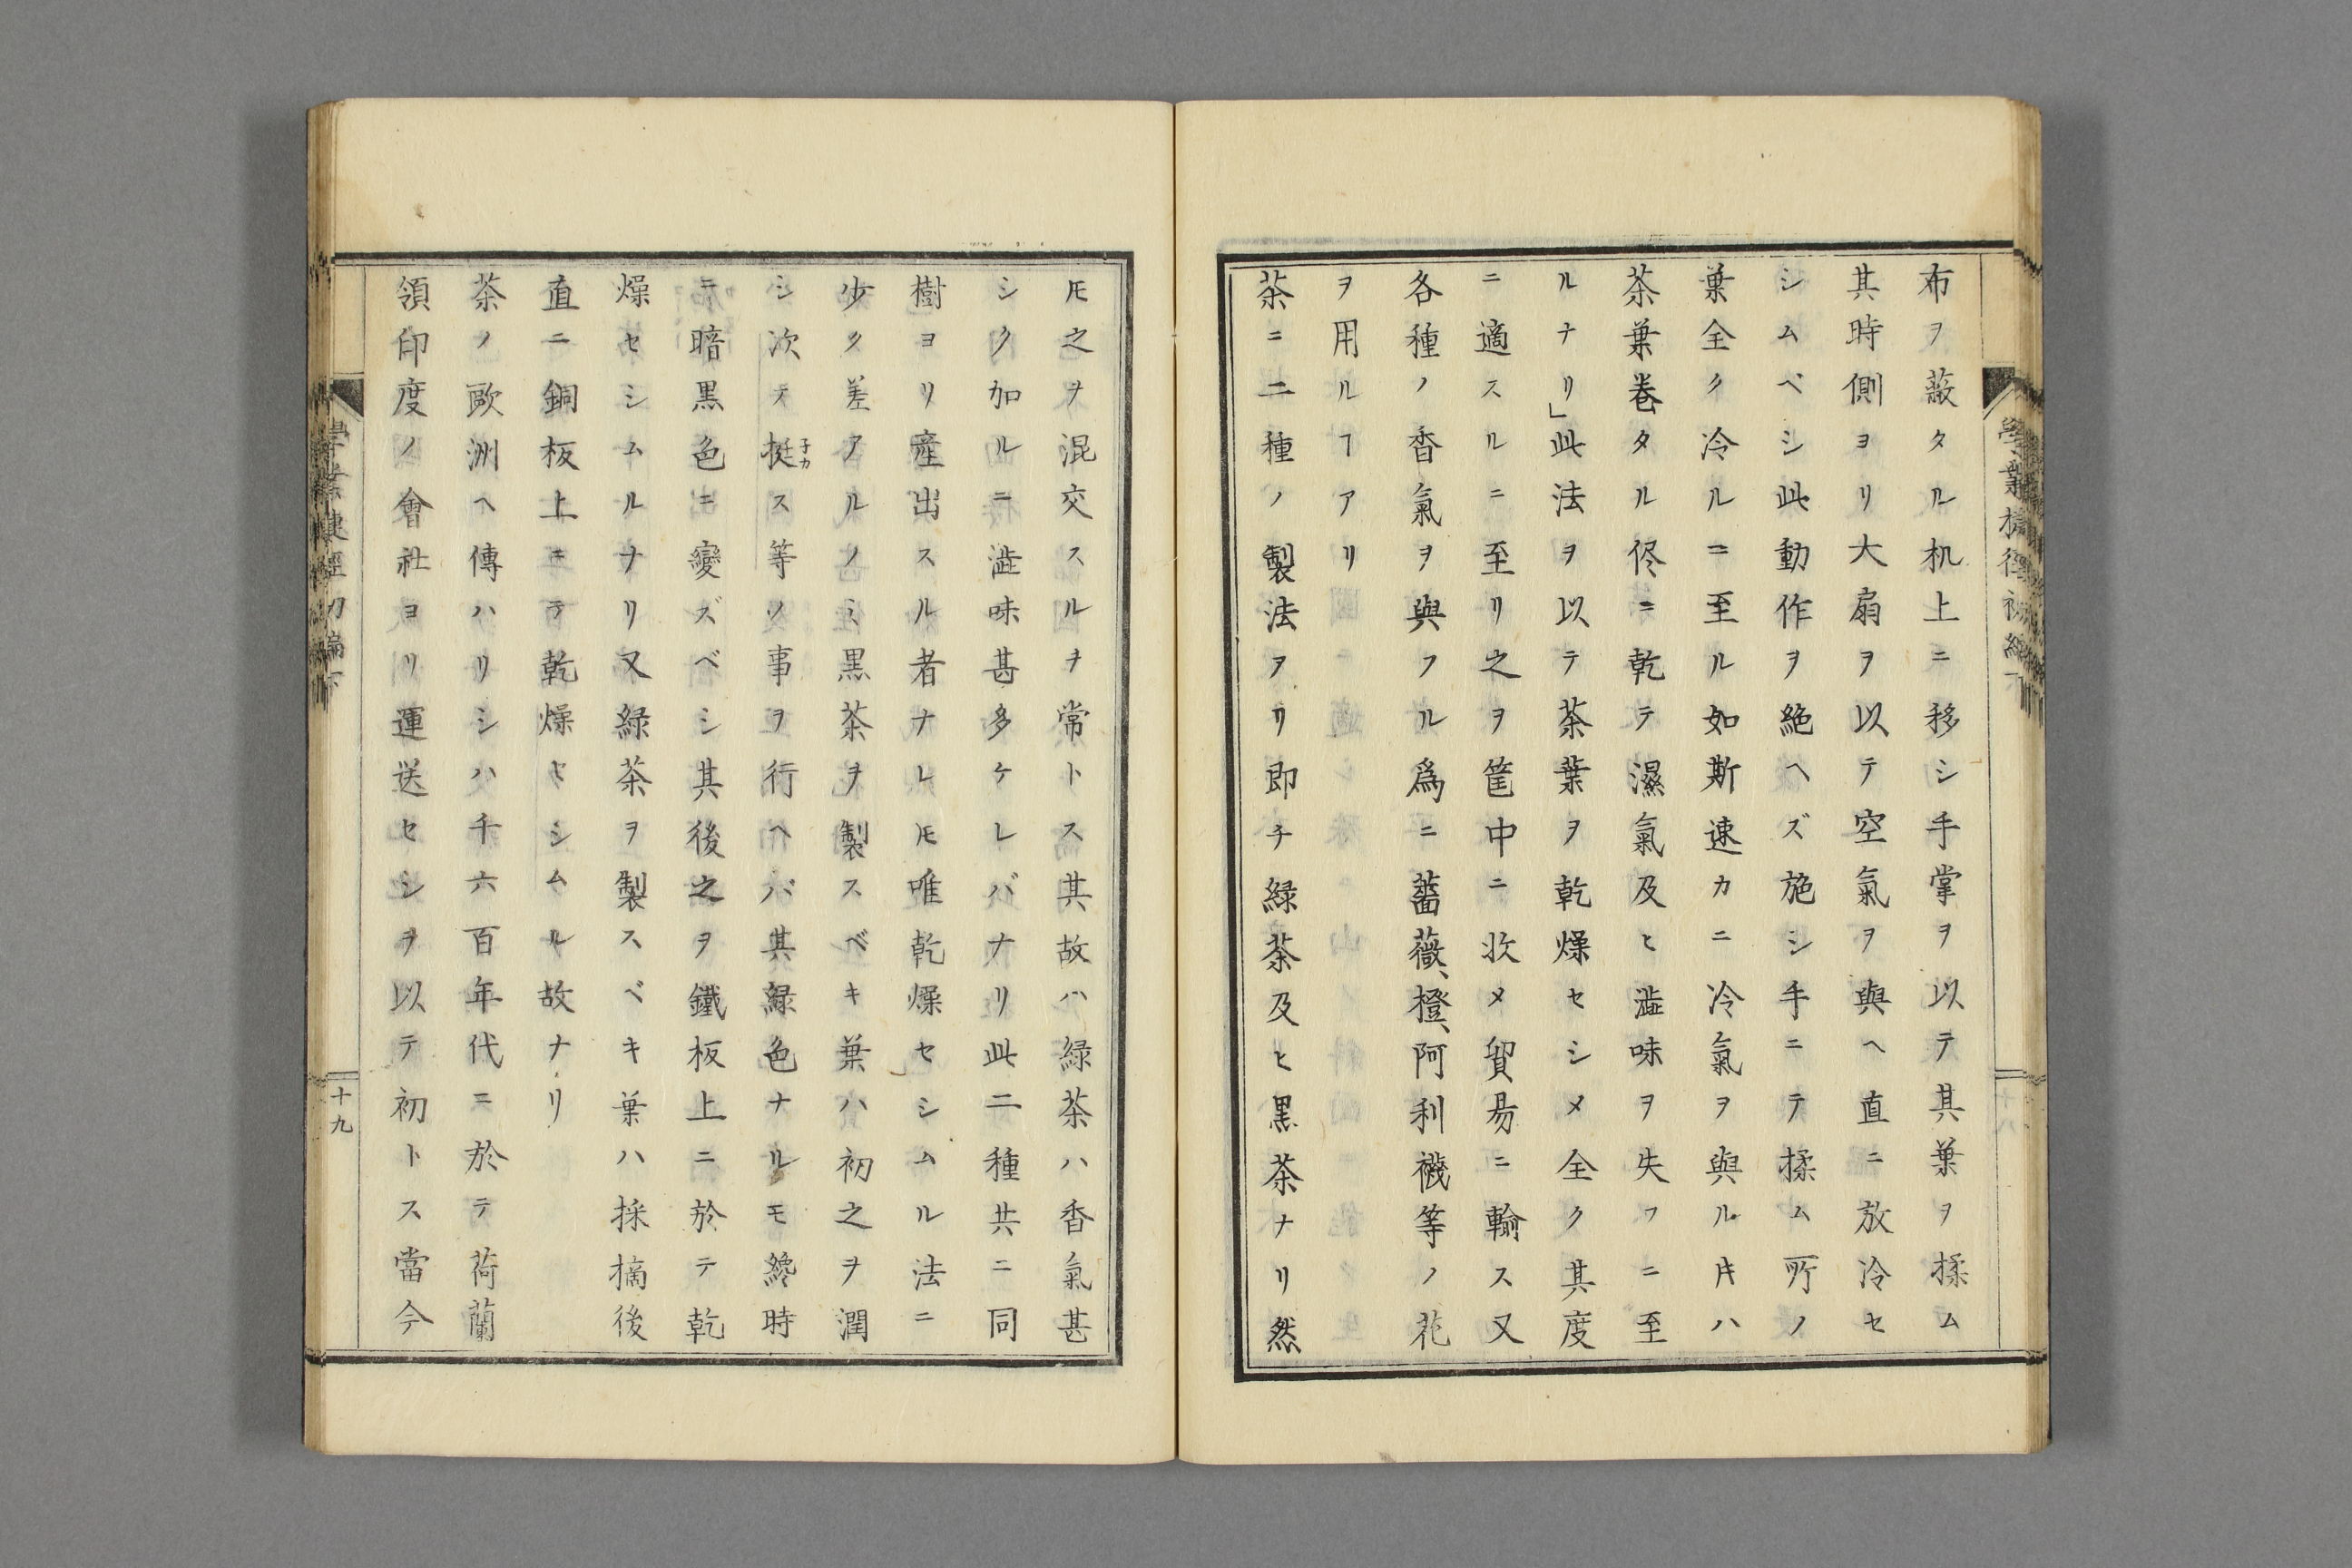 布ヲ蔽タル机上ニ移シ手掌ヲ以テ其葉ヲ揉ム
其時側ヨリ大扇ヲ以テ空氣ヲ與ヘ直ニ放冷セ
シムベシ此動作ヲ絶ヘズ施シ手ニテ揉ム所ノ
葉全ク冷ルニ至ル如斯速カニ冷氣ヲ與ル𪜈ハ
茶葉卷タル侭ニ乾テ濕氣及ヒ澁味ヲ失フニ至
ルナリ」此法ヲ以テ茶葉ヲ乾燥セシメ全ク其度
ニ適スルニ至リ之ヲ筐中ニ收メ貿易ニ輸ス又
各種ノ香氣ヲ與フル爲ニ薔薇、橙、阿利襪等ノ花
ヲ用ルヿアリ
茶ニ二種ノ製法アリ即チ緑茶及ヒ黒茶ナリ然
𪜈之ヲ混交スルヲ常トス其故ハ緑茶ハ香氣甚
シク加ルニ澁味甚多ケレバナリ此二種共ニ同
樹ヨリ産出スル者ナレ𪜈唯乾燥セシムル法ニ
少ク差アルノミ黒茶ヲ製スベキ葉ハ初之ヲ潤
シ次テ挺ス等ノ事ヲ行ヘバ其緑色ナルモ纔時
ニ暗黒色ニ變ズベシ其後之ヲ鐵板上ニ於テ乾
燥セシムルナリ又緑茶ヲ製スベキ葉ハ採摘後
直ニ銅板上ニテ乾燥セシムル故ナリ
茶ノ歐洲ヘ傳ハリシハ千六百年代ニ於テ荷蘭
領印度ノ會社ヨリ運送セシヲ以テ初トス當今
十九